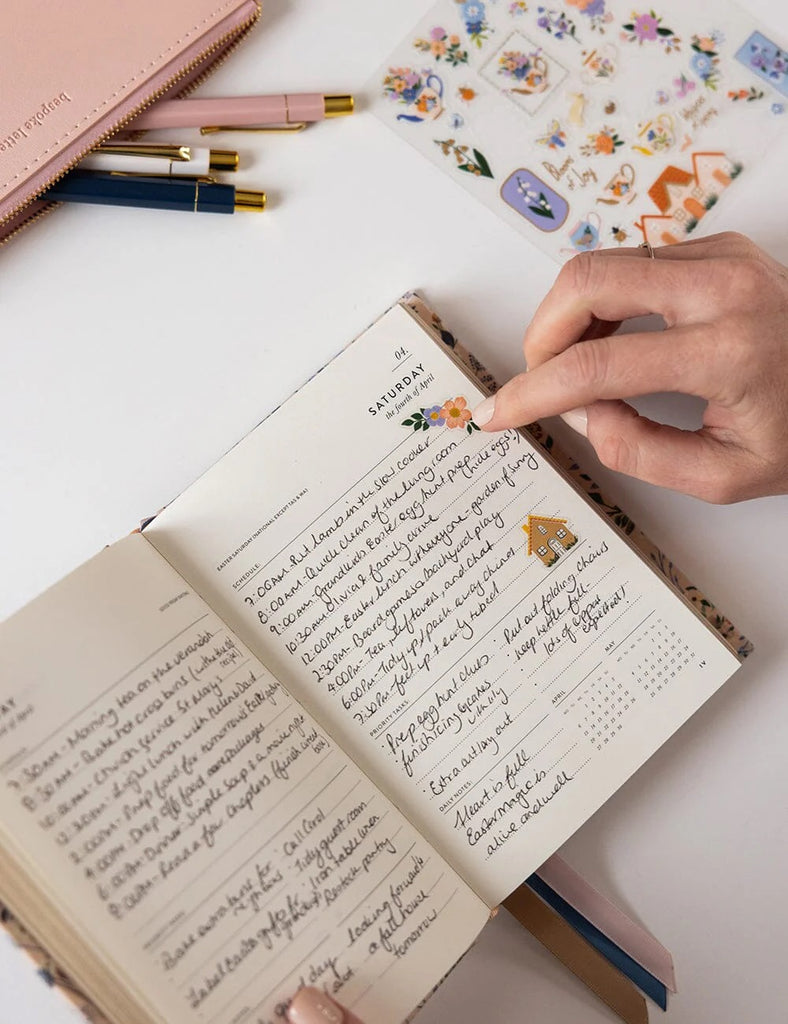 bespoke lette
Blooms of Joy
04.
SATURDAY
the fourth of April
EASTER SATURDAY (NATIONAL EXCEPT TAS & WA)
SCHEDULE:
7:05AM - Put lamb in the slow cooker
8:00AM - Quick clean of the living room
9:00AM - Grandkids Easter egg hunt prep (hide eggs!)
10:30AM Olivia & family arrive
12:00PM - Easter lunch with everyone - garden if sunny
2:30PM - Board games & backyard play
4:00PM - Tea, leftovers, and chat
6:00PM - Tidy up / pack away chines
7:30PM - feet up + early to bed!
PRIORITY TASKS:
· Prep egg hunt clues
· Put out folding chairs
· finish icing cakes w/ Lily
· keep kettle full - lots of cuppas expected!
· Extra outlay out
DAILY NOTES:
Heart is full
Easter magic is
alive and well
APRIL
MAY
IV
AY
th of April
GOOD FRIDAY (NATIONAL)
7:30AM - Morning tea on the verandah
8:30AM - Bake hot cross buns (with the recipe)
10:00AM - Church service St Mary's
12:30PM - Light lunch with Helen & Dad
2:00PM - Prep food for tomorrow's
4:00PM - Drop off food care packages
6:00PM - Dinner - Simple soup & a movie night
8:00PM - Read a few chapters (finish
Bake extra buns for neighbours
· Call Carol
· Tidy guest room
· Label Easter gifts for
· Iron table linen
· Restock pantry
day
looking forward to
a full house
tomorrow